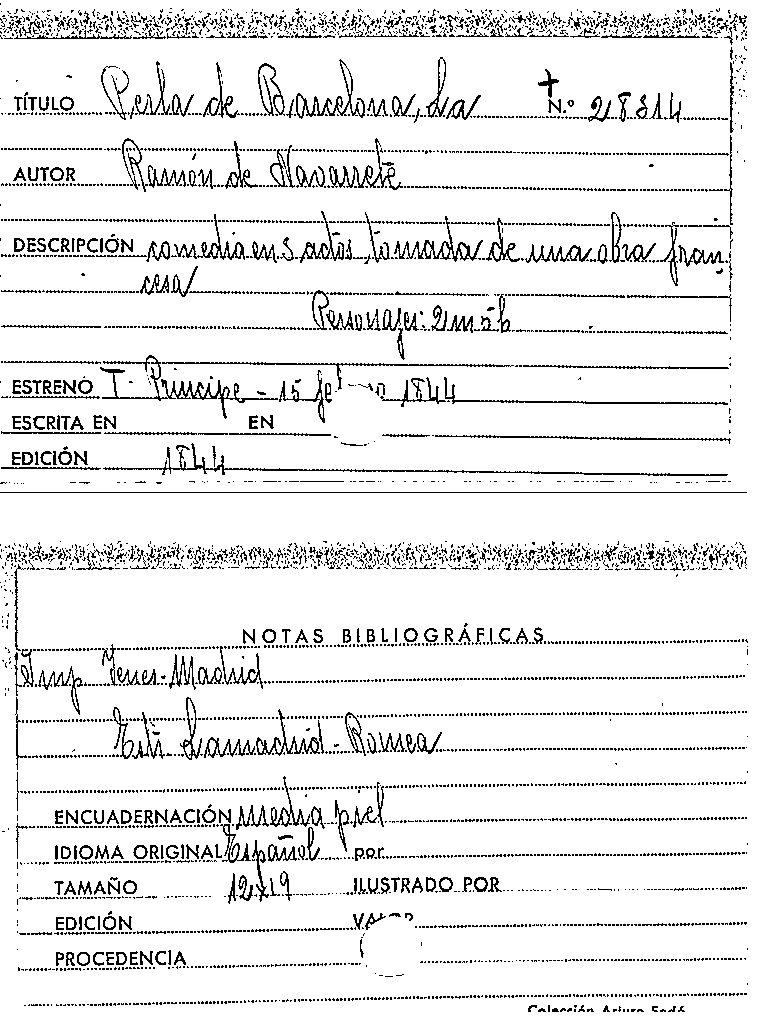 TÍTULO Perla de Barcelona, La N.º 28314
AUTOR Ramón de Navarrete
DESCRIPCIÓN comedia en 3 actos, tomada de una obra fran
cesa
Personajes: 2m 5h
ESTRENO T. Príncipe - 15 febrero 1844
ESCRITA EN EN
EDICIÓN 1844
NOTAS BIBLIOGRÁFICAS
Imp Yenes - Madrid
Est: Lamadrid - Romea
ENCUADERNACIÓN media piel
IDIOMA ORIGINAL Español por
TAMAÑO 12x19 ILUSTRADO POR
EDICIÓN VALOR
PROCEDENCIA
Colección Arturo Sedó